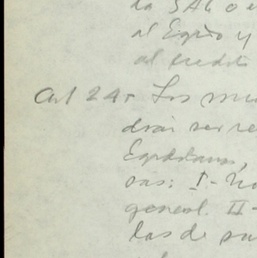 la SAG o e
al Egiro y
al credito
Art 24º Los mi
drán ser re
Expddam,
sas: I- No
general. II-
las de su